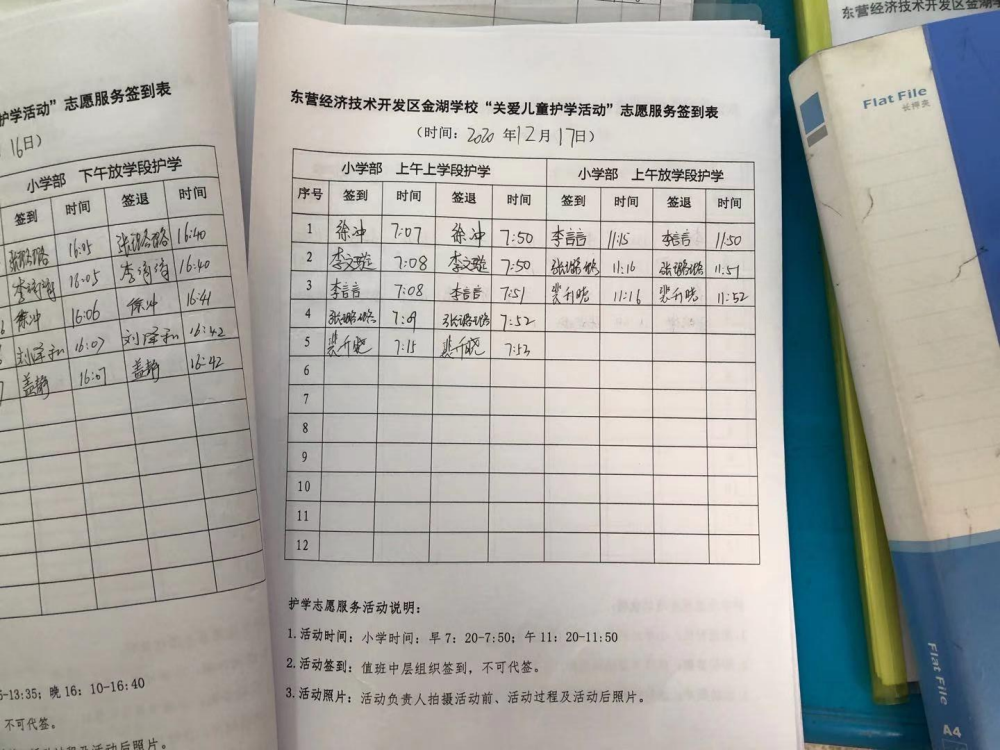 东营经济技术开发区金湖学
护学活动”志愿服务签到表
16日）
小学部 下午放学段护学
签到 时间 签退 时间
张璐璐 16:05 张璐璐 16:40
16:05 16:40
徐冲 16:06 徐冲 16:41
刘泽和 16:07 刘泽和 16:42
盖静 16:07 盖静 16:42
5-13:35；晚16：10-16:40
不可代签。
活动后照片。
东营经济技术开发区金湖学校“关爱儿童护学活动”志愿服务签到表
（时间：2020 年12月17日）
小学部 上午上学段护学 小学部 上午放学段护学
序号 签到 时间 签退 时间 签到 时间 签退 时间
1 徐冲 7:07 徐冲 7:50 李言言 11:15 李言言 11:50
2 李文璇 7:08 李文璇 7:50 张璐璐 11:16 张璐璐 11:51
3 李言言 7:08 李言言 7:51 裴升晓 11:16 裴升晓 11:52
4 张璐璐 7:09 张璐璐 7:52
5 裴升晓 7:15 裴升晓 7:53
6
7
8
9
10
11
12
护学志愿服务活动说明：
1.活动时间：小学时间：早7：20-7:50；午11：20-11:50
2.活动签到：值班中层组织签到，不可代签。
3.活动照片：活动负责人拍摄活动前、活动过程及活动后照片。
Flat File
长押夹
Flat File
A4